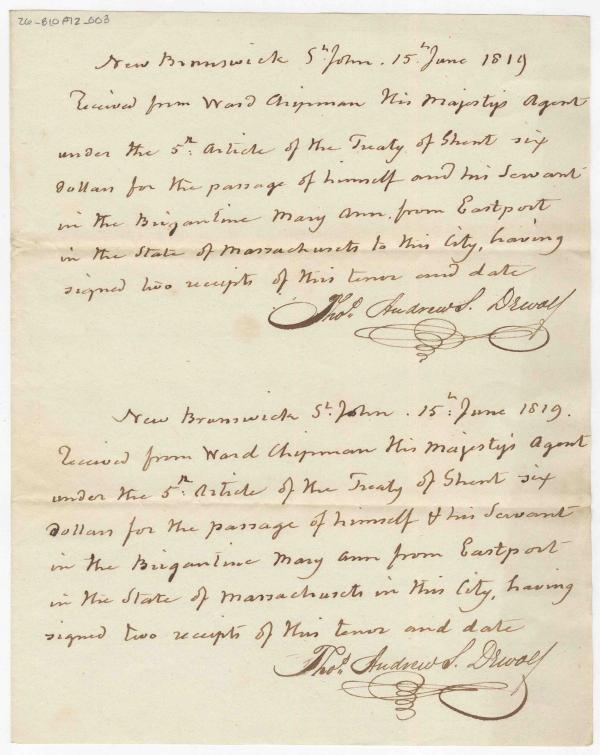 26-B10F12_003
New Brunswick St. John. 15th June 1819
Received from Ward Chipman His Majesty's Agent
under the 5th Article of the Treaty of Ghent six
dollars for the passage of himself and his Servant
in the Brigantine Mary Ann, from Eastport
in the State of Massachusets to this City, having
signed two receipts of this tenor and date
Thos. Andrew S. Dewolf
New Brunswick St. John. 15th June 1819.
Received from Ward Chipman His Majesty's Agent
under the 5th Article of the Treaty of Ghent six
dollars for the passage of himself & his Servant
in the Brigantine Mary Ann from Eastport
in the State of Massachusets in this City, having
signed two receipts of this tenor and date
Thos. Andrew S. Dewolf